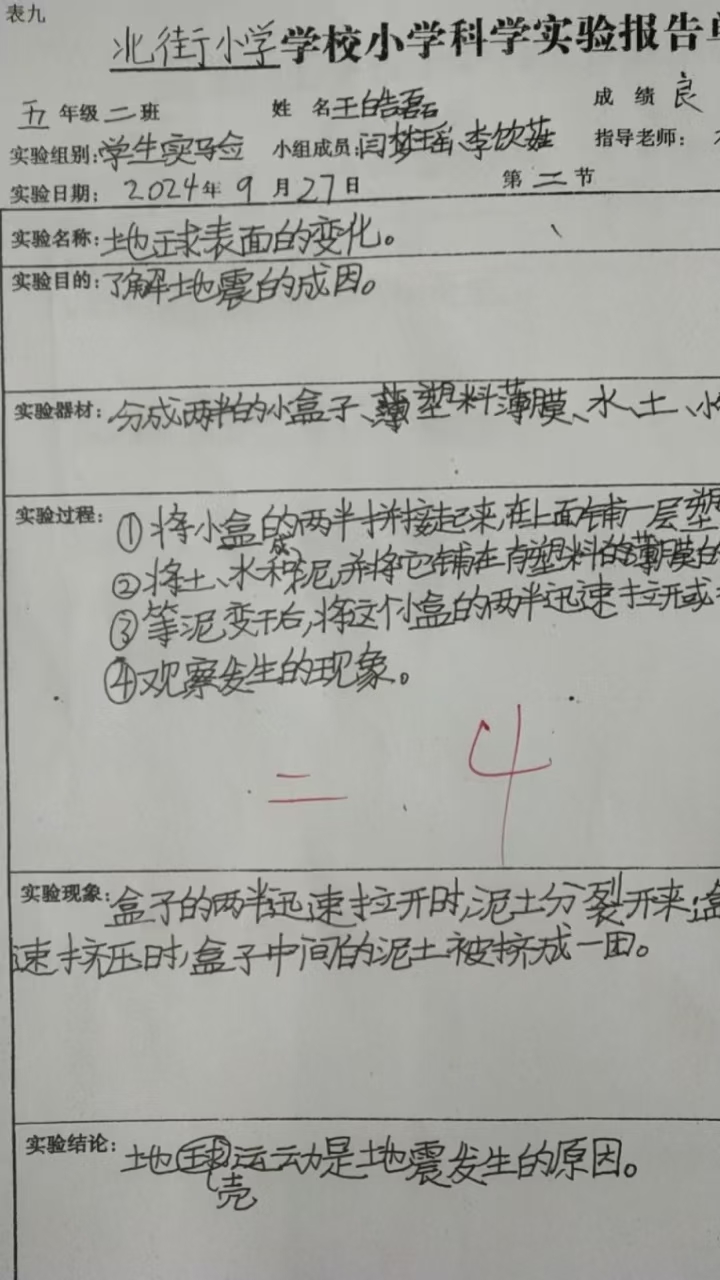 表九
北街小学学校小学科学实验报告单
五年级二班 姓名王皓磊 成绩良
实验组别:学生实验 小组成员:闫梦瑶、李饮菲 指导老师:
实验日期: 2024年9月27日 第二节
实验名称:地球表面的变化。
实验目的:了解地震的成因。
实验器材:分成两半的小盒子、塑料薄膜、水、土、
实验过程:①将小盒的两半拼接起来,在上面铺一层塑
②将土、水和成泥,并将它铺在有塑料的薄膜的
③等泥变干后,将这个小盒的两半迅速拉开或
④观察发生的现象。
二 4
实验现象:盒子的两半迅速拉开时,泥土分裂开来;盒
速挤压时,盒子中间的泥土被挤成一团。
实验结论:地球运动是地震发生的原因。
壳